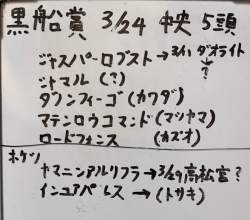 黒船賞 3/24 中央 5頭
ジャスパーロブスト→3/11 ダオライト
↓
?
ジャマル (?)
タガンフィーゴ (カワダ)
マテンロウコマンド (マツヤマ)
ロードフォンス (カズオ)
ホケツ
ヤマニンアルリフラ→3/29 高松宮?
インユアパレス→(トサキ)